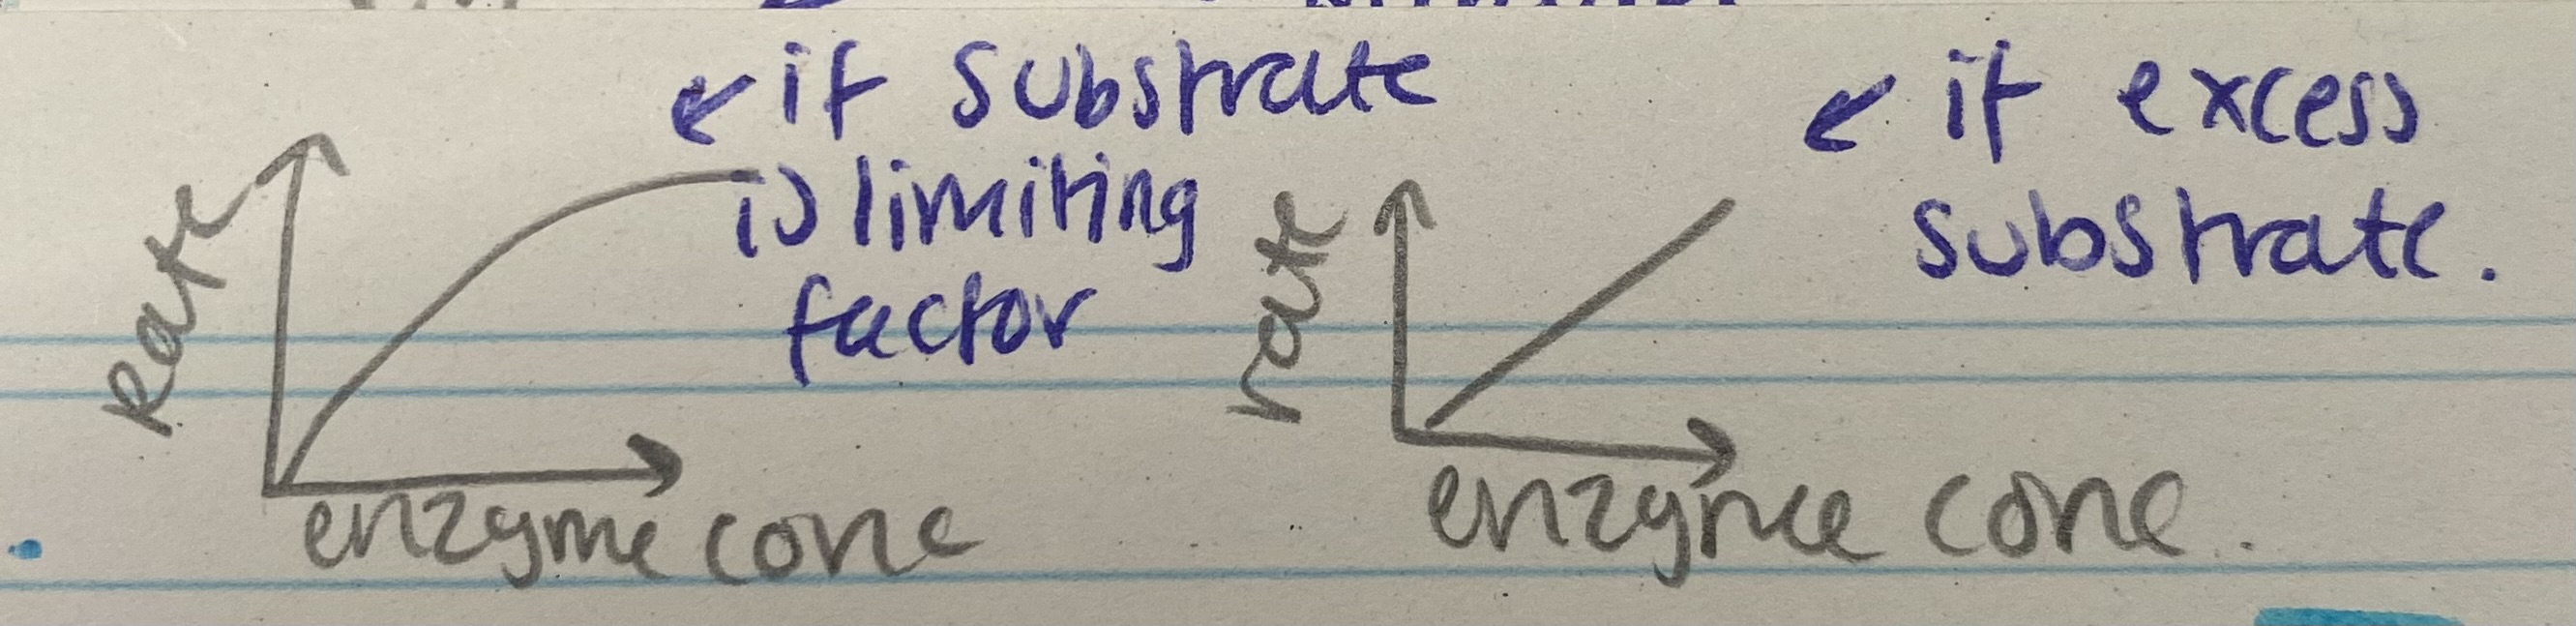 if substrate
is limiting
factor
Rate
enzyme conc
if excess
substrate.
rate
enzyme conc.